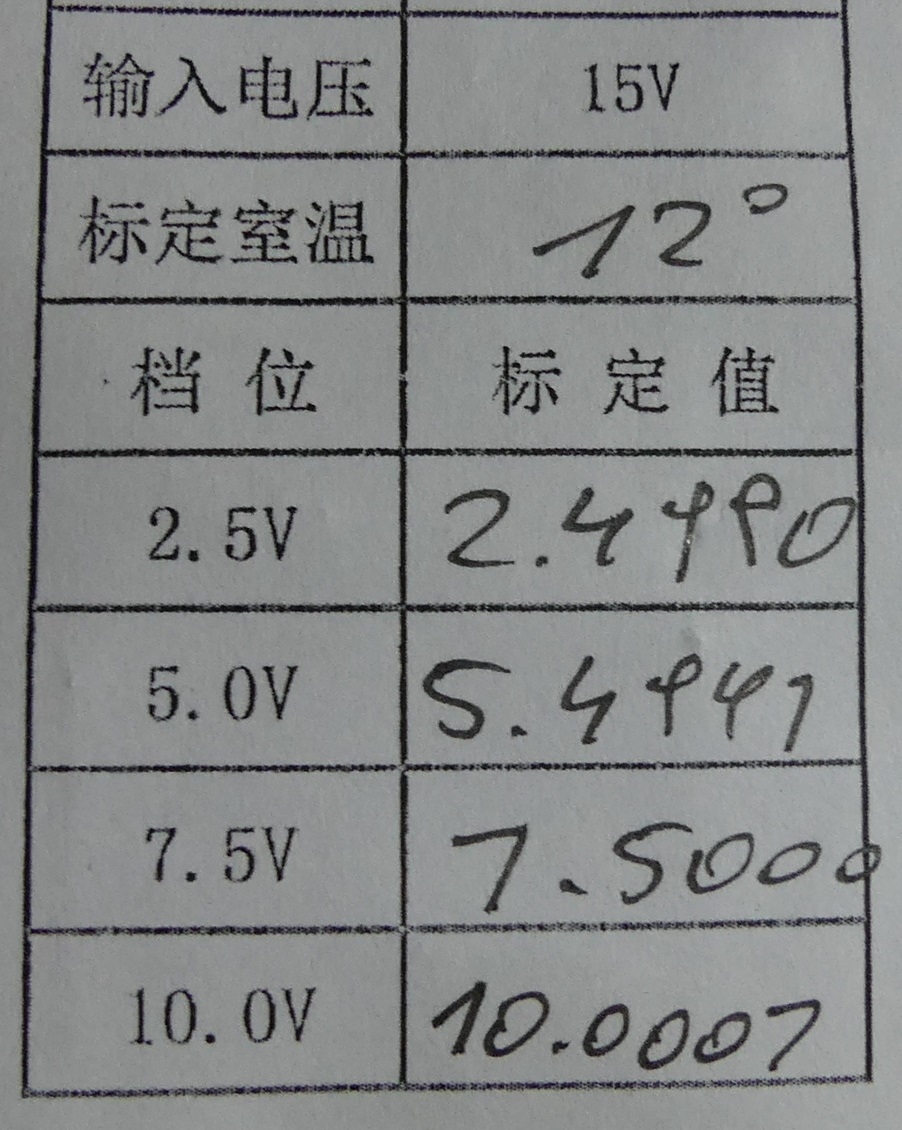 输入电压 15V
标定室温 12°
档 位 标 定 值
2.5V 2.4990
5.0V
7.5V 7.5000
10.0V 10.0007